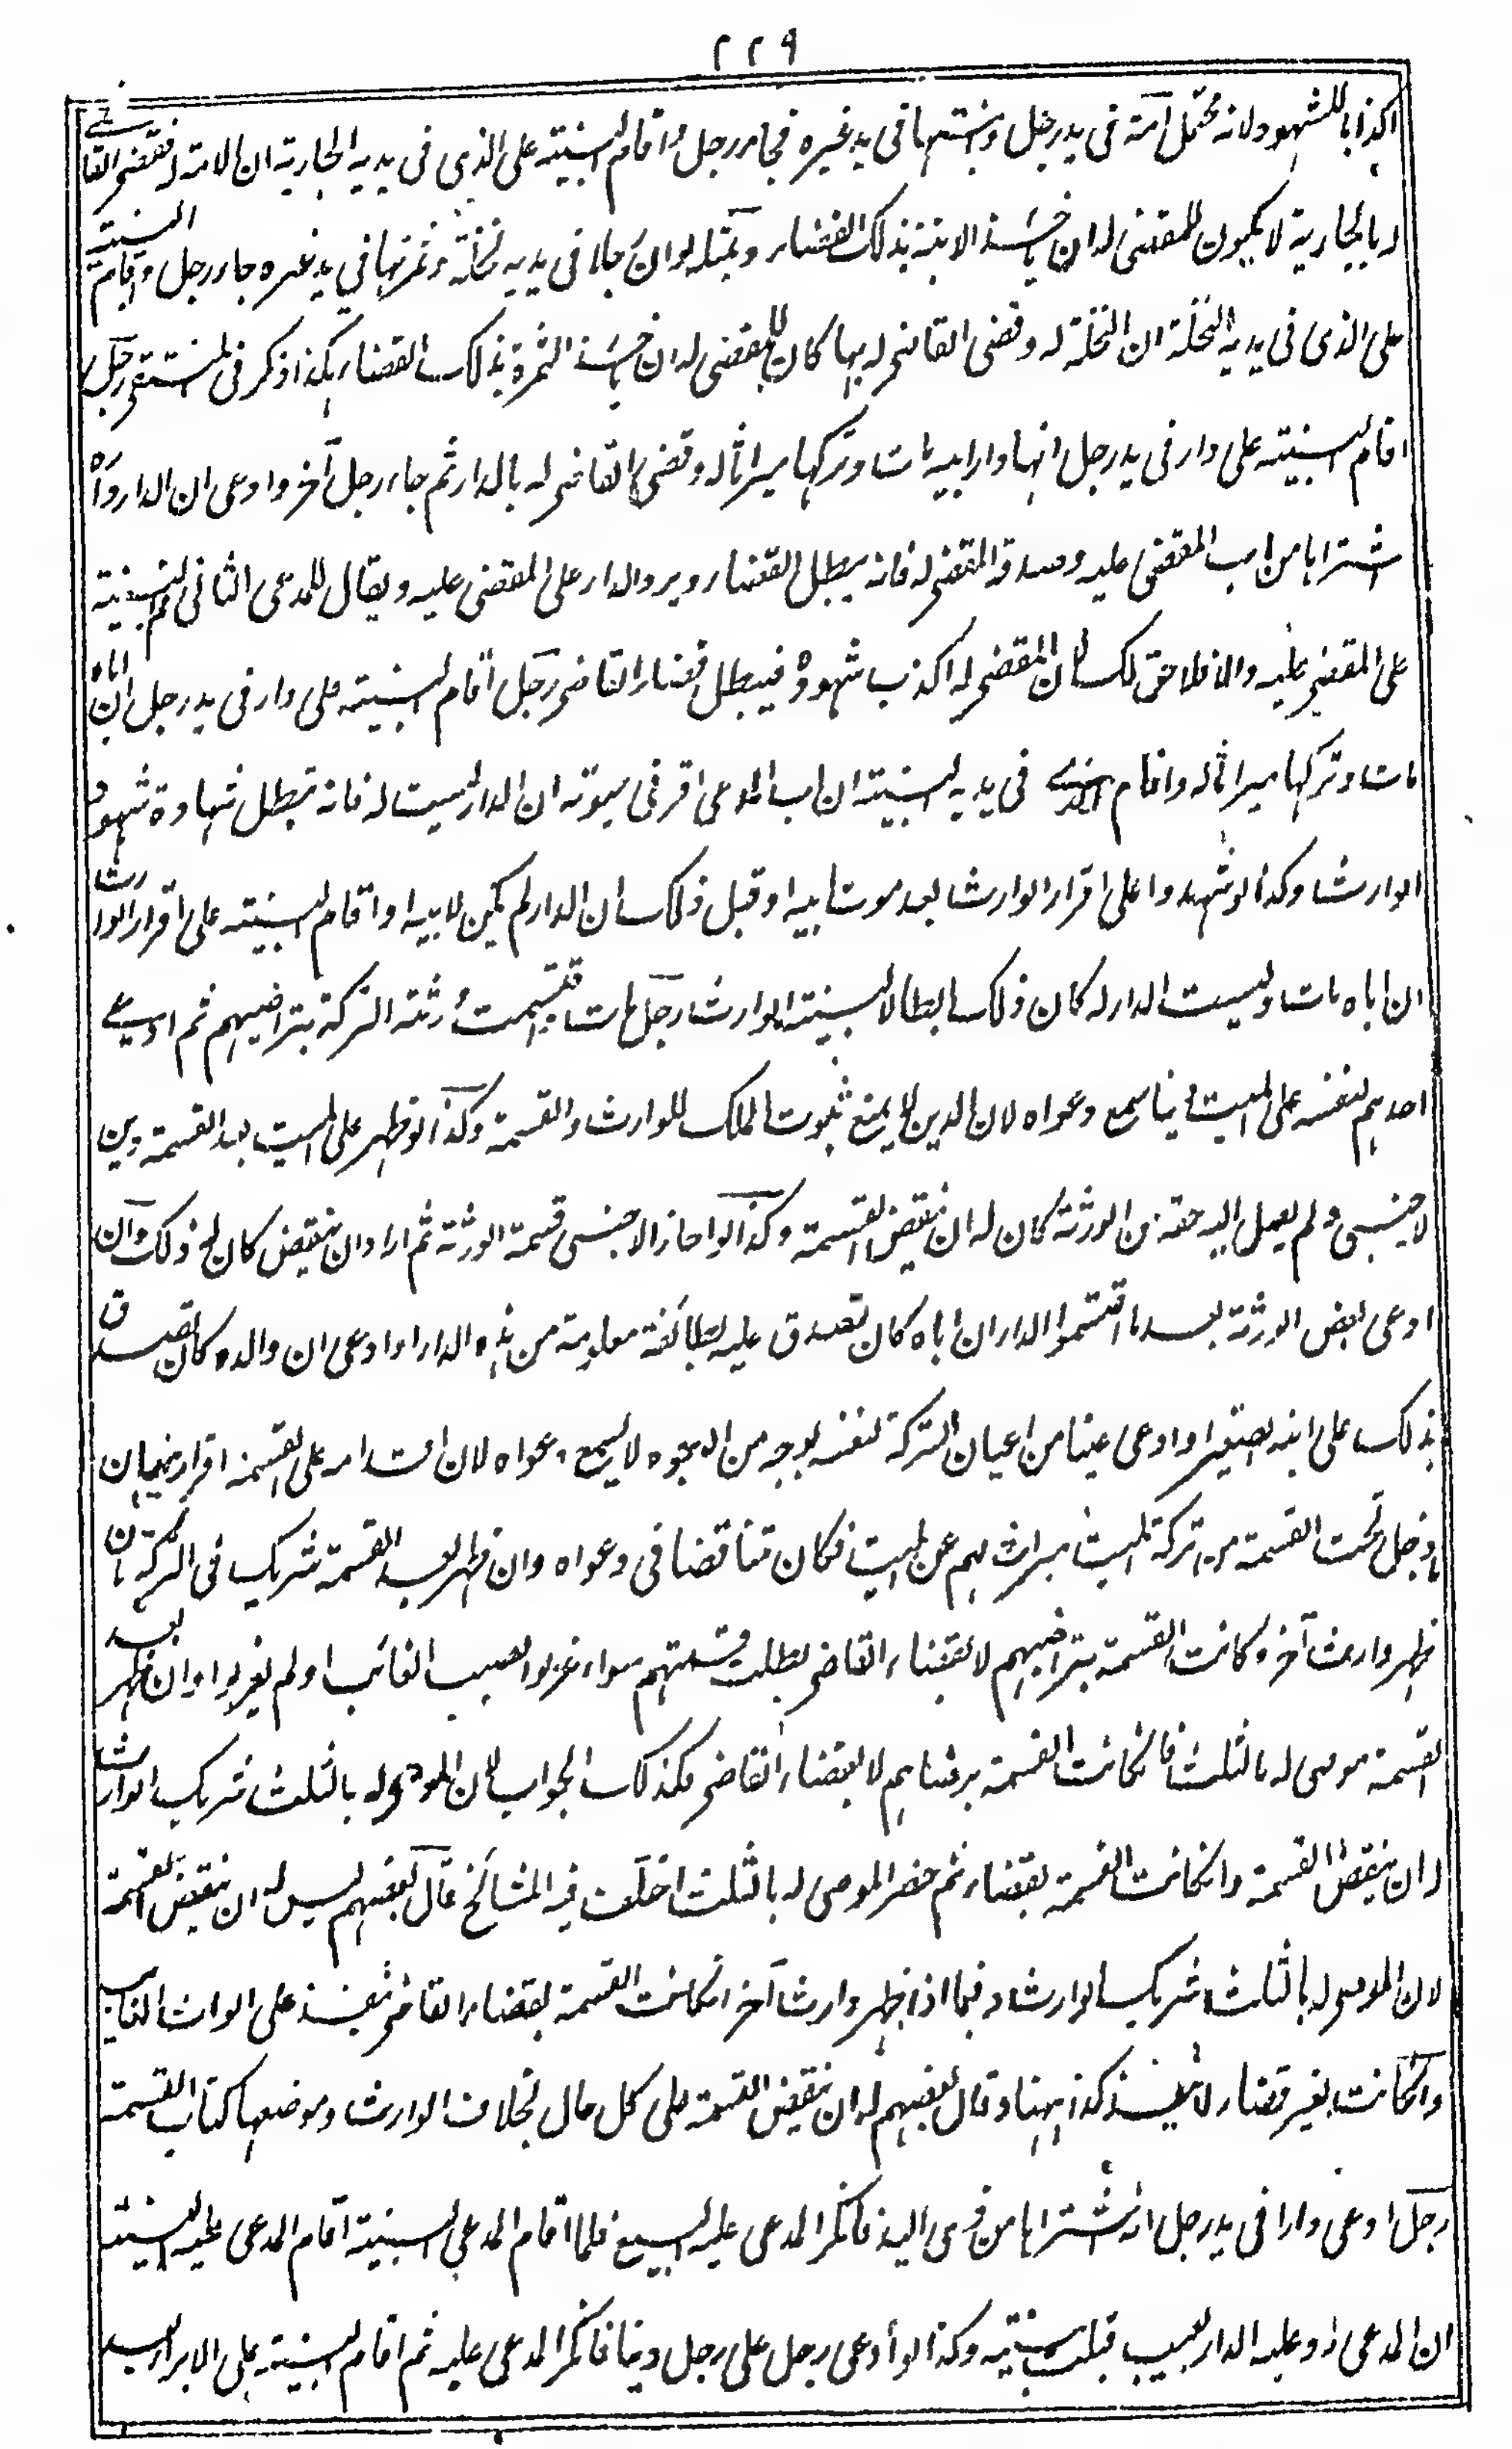 ٢٢٩
اكذابا للشهود ولانه محتمل امة فى يد رجل وبنتها فى يد غيره فجاء رجل واقام البينة على الذى فى يديه الجارية ان الامة له فقضى القاضى
له بالجارية لا يكون للمقضى له ان ياخذ الابنة بذلك القضاء وبمثله لو ان رجلا فى يديه نخلة وثمرتها فى يد غيره جاء رجل واقام البينة
على الذى فى يديه النخلة ان النخلة له وقضى القاضى له بها كان للمقضى له ان ياخذ الثمرة بذلك القضاء هكذا ذكر فى المنتقى رجل
اقام البينة على دار فى يد رجل انها دار ابيه مات وتركها ميراثا له وقضى القاضى له بالدار ثم جاء رجل آخر وادعى ان الدار داره
اشتراها من اب المقضى عليه وصدقه المقضى له فانه يبطل القضاء ويرد الدار على المقضى عليه ويقال للمدعى الثانى اقم البينة
على المقضى عليه والا فلا حق لك لان المقضى له اكذب شهوده فيبطل قضاء القاضى رجل اقام البينة على دار فى يد رجل ان اباه
مات وتركها ميراثا له واقام الذى فى يديه البينة ان اب المدعى اقر فى حيوته ان الدار ليست له فانه تبطل شهادة شهود
الوارث وكذا لو شهدوا على اقرار الوارث بعد موت ابيه او قبل ذلك ان الدار لم يكن لابيه او اقام البينة على اقرار الوارث
ان اباه مات وليست الدار له كان ذلك ابطالا لبينة الوارث رجل مات فقسمت ورثته التركة بتراضيهم ثم ادعى
احدهم لنفسه على الميت دينا سمع دعواه لان الدين لا يمنع ثبوت الملك للوارث والقسمة وكذا لو ظهر على الميت بعد القسمة دين
لاجنبى ولم يصل اليه حقه من الورثة كان له ان ينقض القسمة وكذا لو اجاز الاجنبى قسمة الورثة ثم اراد ان ينقض كان له ذلك وان
ادعى بعض الورثة بعد ما اقتسموا الدار ان اباه كان تصدق عليه بطائفة معلومة من هذه الدار او ادعى ان والده كان تصدق
بذلك على ابنه الصغير او ادعى عينا من اعيان التركة لنفسه بوجه من الوجوه لا يسمع دعواه لان اقدامه على القسمة اقرار منه بان
ما دخل تحت القسمة من تركة الميت ميراث لهم عن الميت فكان متناقضا فى دعواه وان ظهر بعد القسمة شريك فى التركة بان
ظهر وارث آخر وكانت القسمة بتراضيهم لا بقضاء القاضى بطلت قسمتهم سواء عزلوا نصيب الغائب او لم يعزلوا وان ظهر بعد
القسمة موصى له بالثلث فان كانت القسمة برضاهم لا بقضاء القاضى فكذلك الجواب لان الموصى له بالثلث شريك الوارث
له ان ينقض القسمة وان كانت القسمة بقضاء ثم حضر الموصى له بالثلث اختلف فيه المشائخ قال بعضهم ليس له ان ينقض القسمة
لان الموصى له بالثلث شريك الوارث وفيما اذا ظهر وارث آخر ان كانت القسمة بقضاء القاضى ينفذ على الوارث الغائب
وان كانت بغير قضاء لا ينفذ كذا ههنا وقال بعضهم له ان ينقض القسمة على كل حال بخلاف الوارث وموضعها كتاب القسمة
رجل ادعى دارا فى يد رجل انه اشتراها من ذى اليد فانكر المدعى عليه البيع فلما اقام المدعى البينة اقام المدعى عليه البينة
ان المدعى رد عليه الدار بعيب قبلت بينته وكذا لو ادعى رجل على رجل دينا فانكر المدعى عليه ثم اقام البينة على الابراء بعد